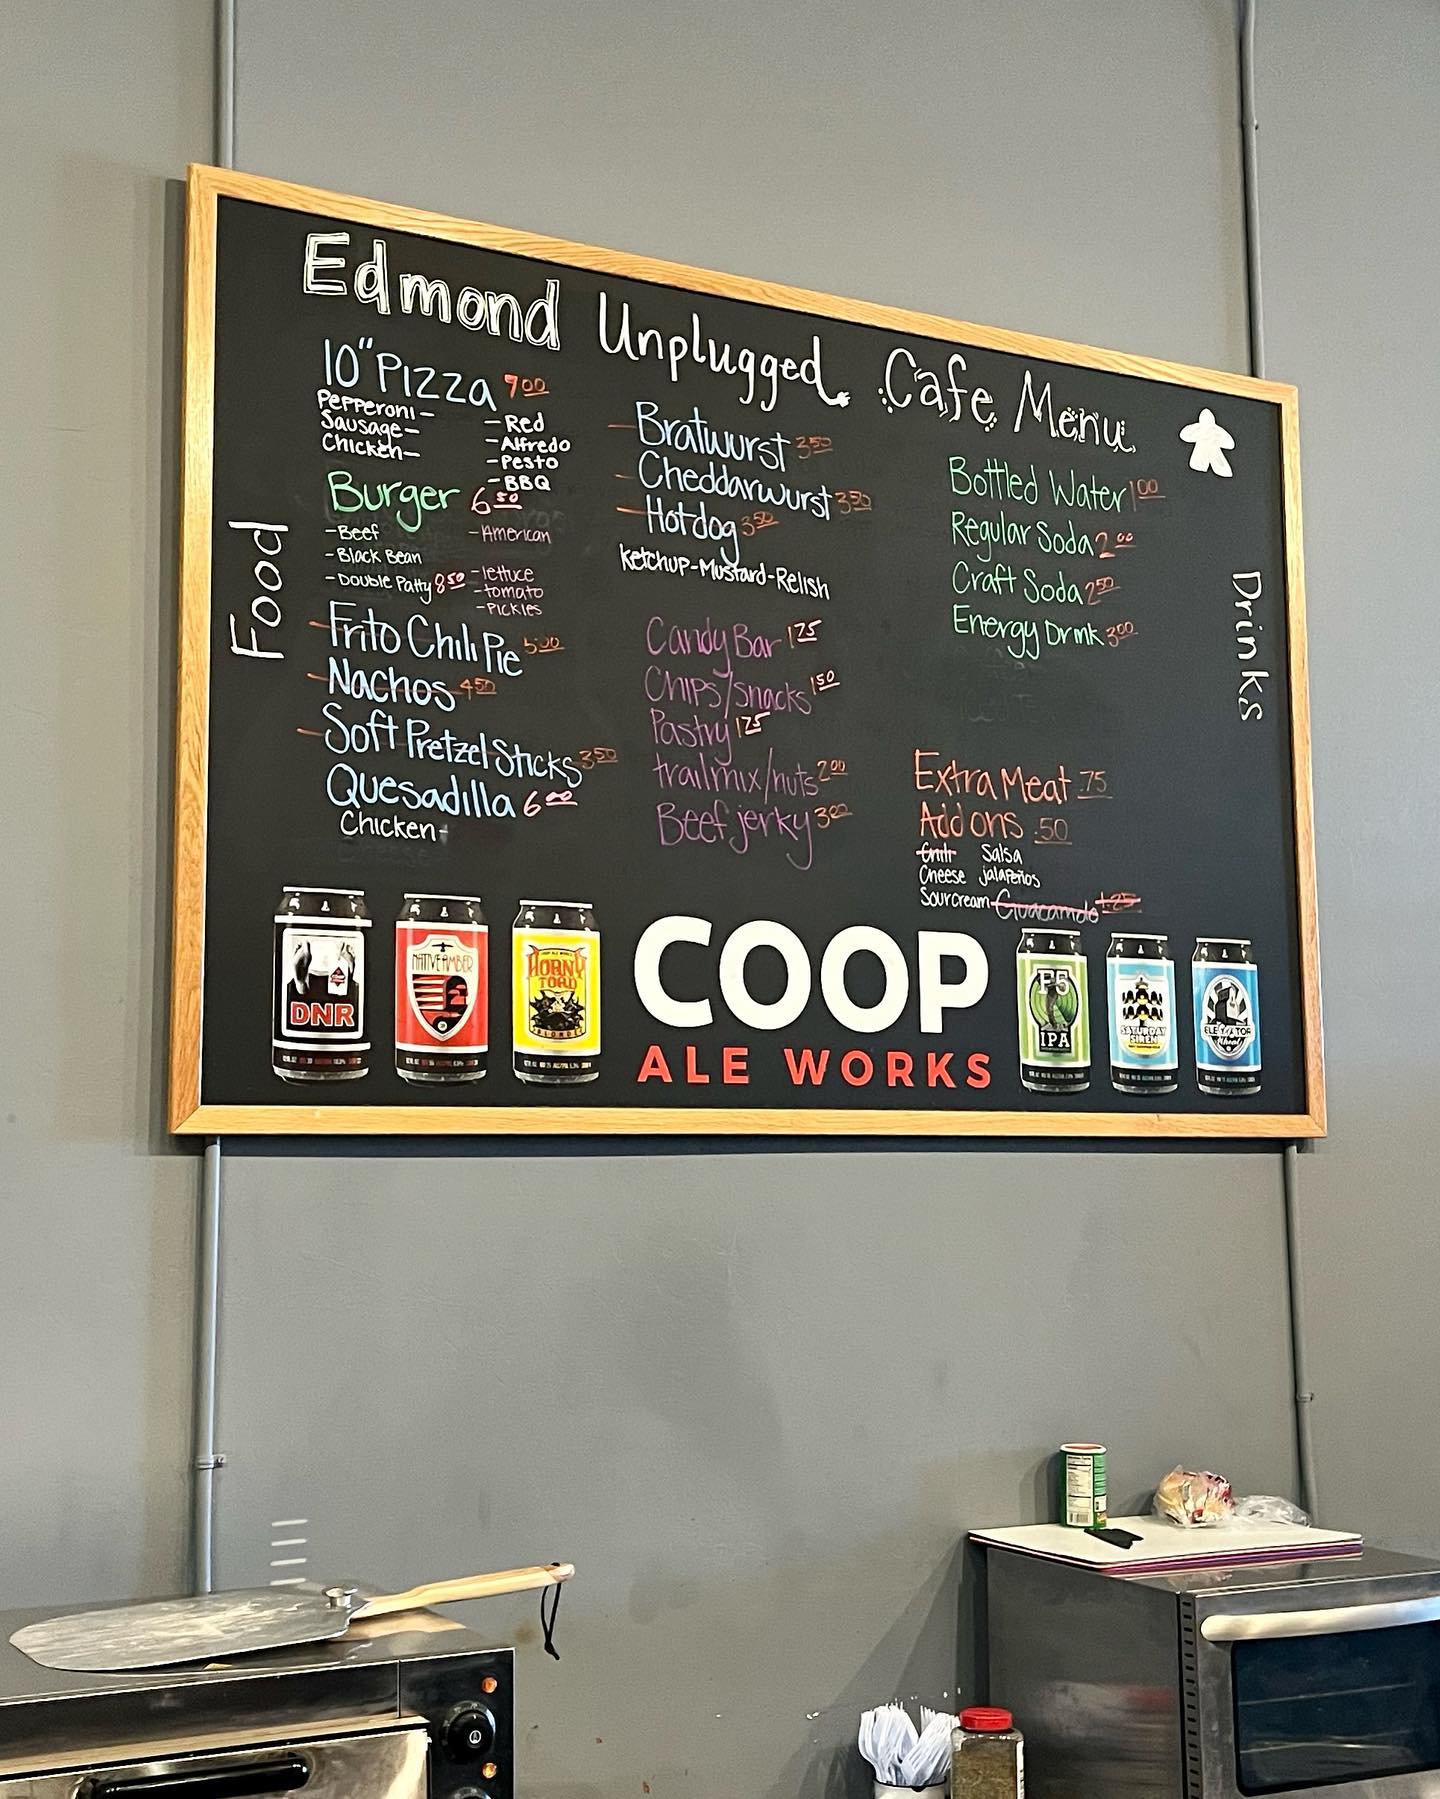 Edmond Unplugged Cafe Menu
Food
10" Pizza 9.00
Pepperoni-
Sausage-
Chicken-
-Red
-Alfredo
-Pesto
-BBQ
Burger 6.50
-Beef
-Black Bean
-Double Patty 8.50
-American
-lettuce
-tomato
-Pickles
Frito Chili Pie 5.00
Nachos 4.50
Soft Pretzel Sticks 3.50
Quesadilla 6.00
Chicken-
Bratwurst 3.50
Cheddarwurst 3.50
Hotdog 3.50
Ketchup-Mustard-Relish
Candy Bar 1.75
Chips/Snacks 1.50
Pastry 1.75
trailmix/nuts 2.00
Beef jerky 3.00
Drinks
Bottled Water 1.00
Regular Soda 2.00
Craft Soda 2.50
Energy Drink 3.00
Extra Meat .75
Add ons .50
Chili Salsa
Cheese jalapeños
Sourcream Guacamole 1.25
DNR
NATIVE AMBER
HORNY
TOAD
BLONDE
COOP
ALE WORKS
F5
IPA
SATURDAY
SIREN
ELEVATOR
Wheat